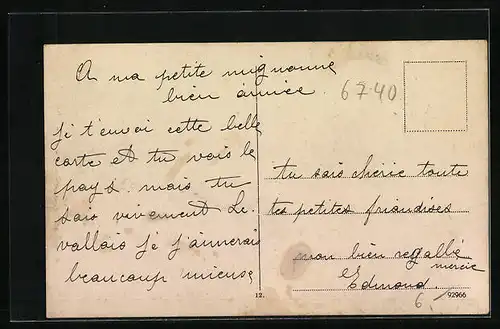 A ma petite mignonne
bien aimée.
67-40
je t'envoi cette belle
carte et tu vois le
pays. mais tu
sais vivement Le.
vallais je j'aimerais
beaucoup mieuse
tu sais chérie toute
tes petites friandises
mon bien regallé
mercie
Edmond.
6.
12.
92966